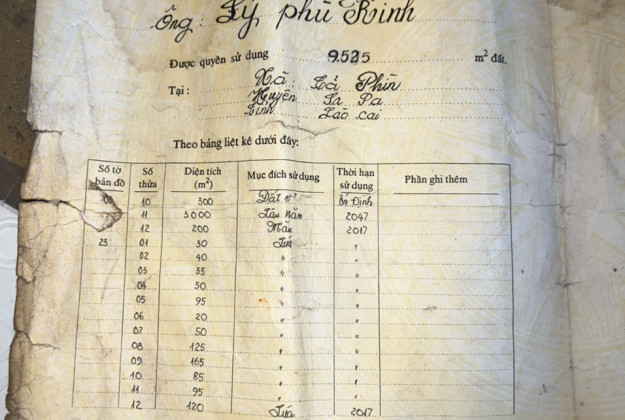 Ông: Lý phù Kinh
Được quyền sử dụng 9.525 m² đất.
Tại: Xã: Tả Phìn
Huyện Sa Pa
Tỉnh Lào cai
Theo bảng liệt kê dưới đây:
Số tờ bản đồ Số thửa Diện tích (m²) Mục đích sử dụng Thời hạn sử dụng Phần ghi thêm
10 300 Đất ở ổn Định
11 3.000 Lâu Năm 2047
12 200 Màu 2017
23 01 30 Lúa "
02 40 " "
03 35 " "
04 50 " "
05 95 " "
06 20 " "
07 50 " "
08 125 " "
09 165 " "
10 85 " "
11 95 " "
12 120 Lúa 2017